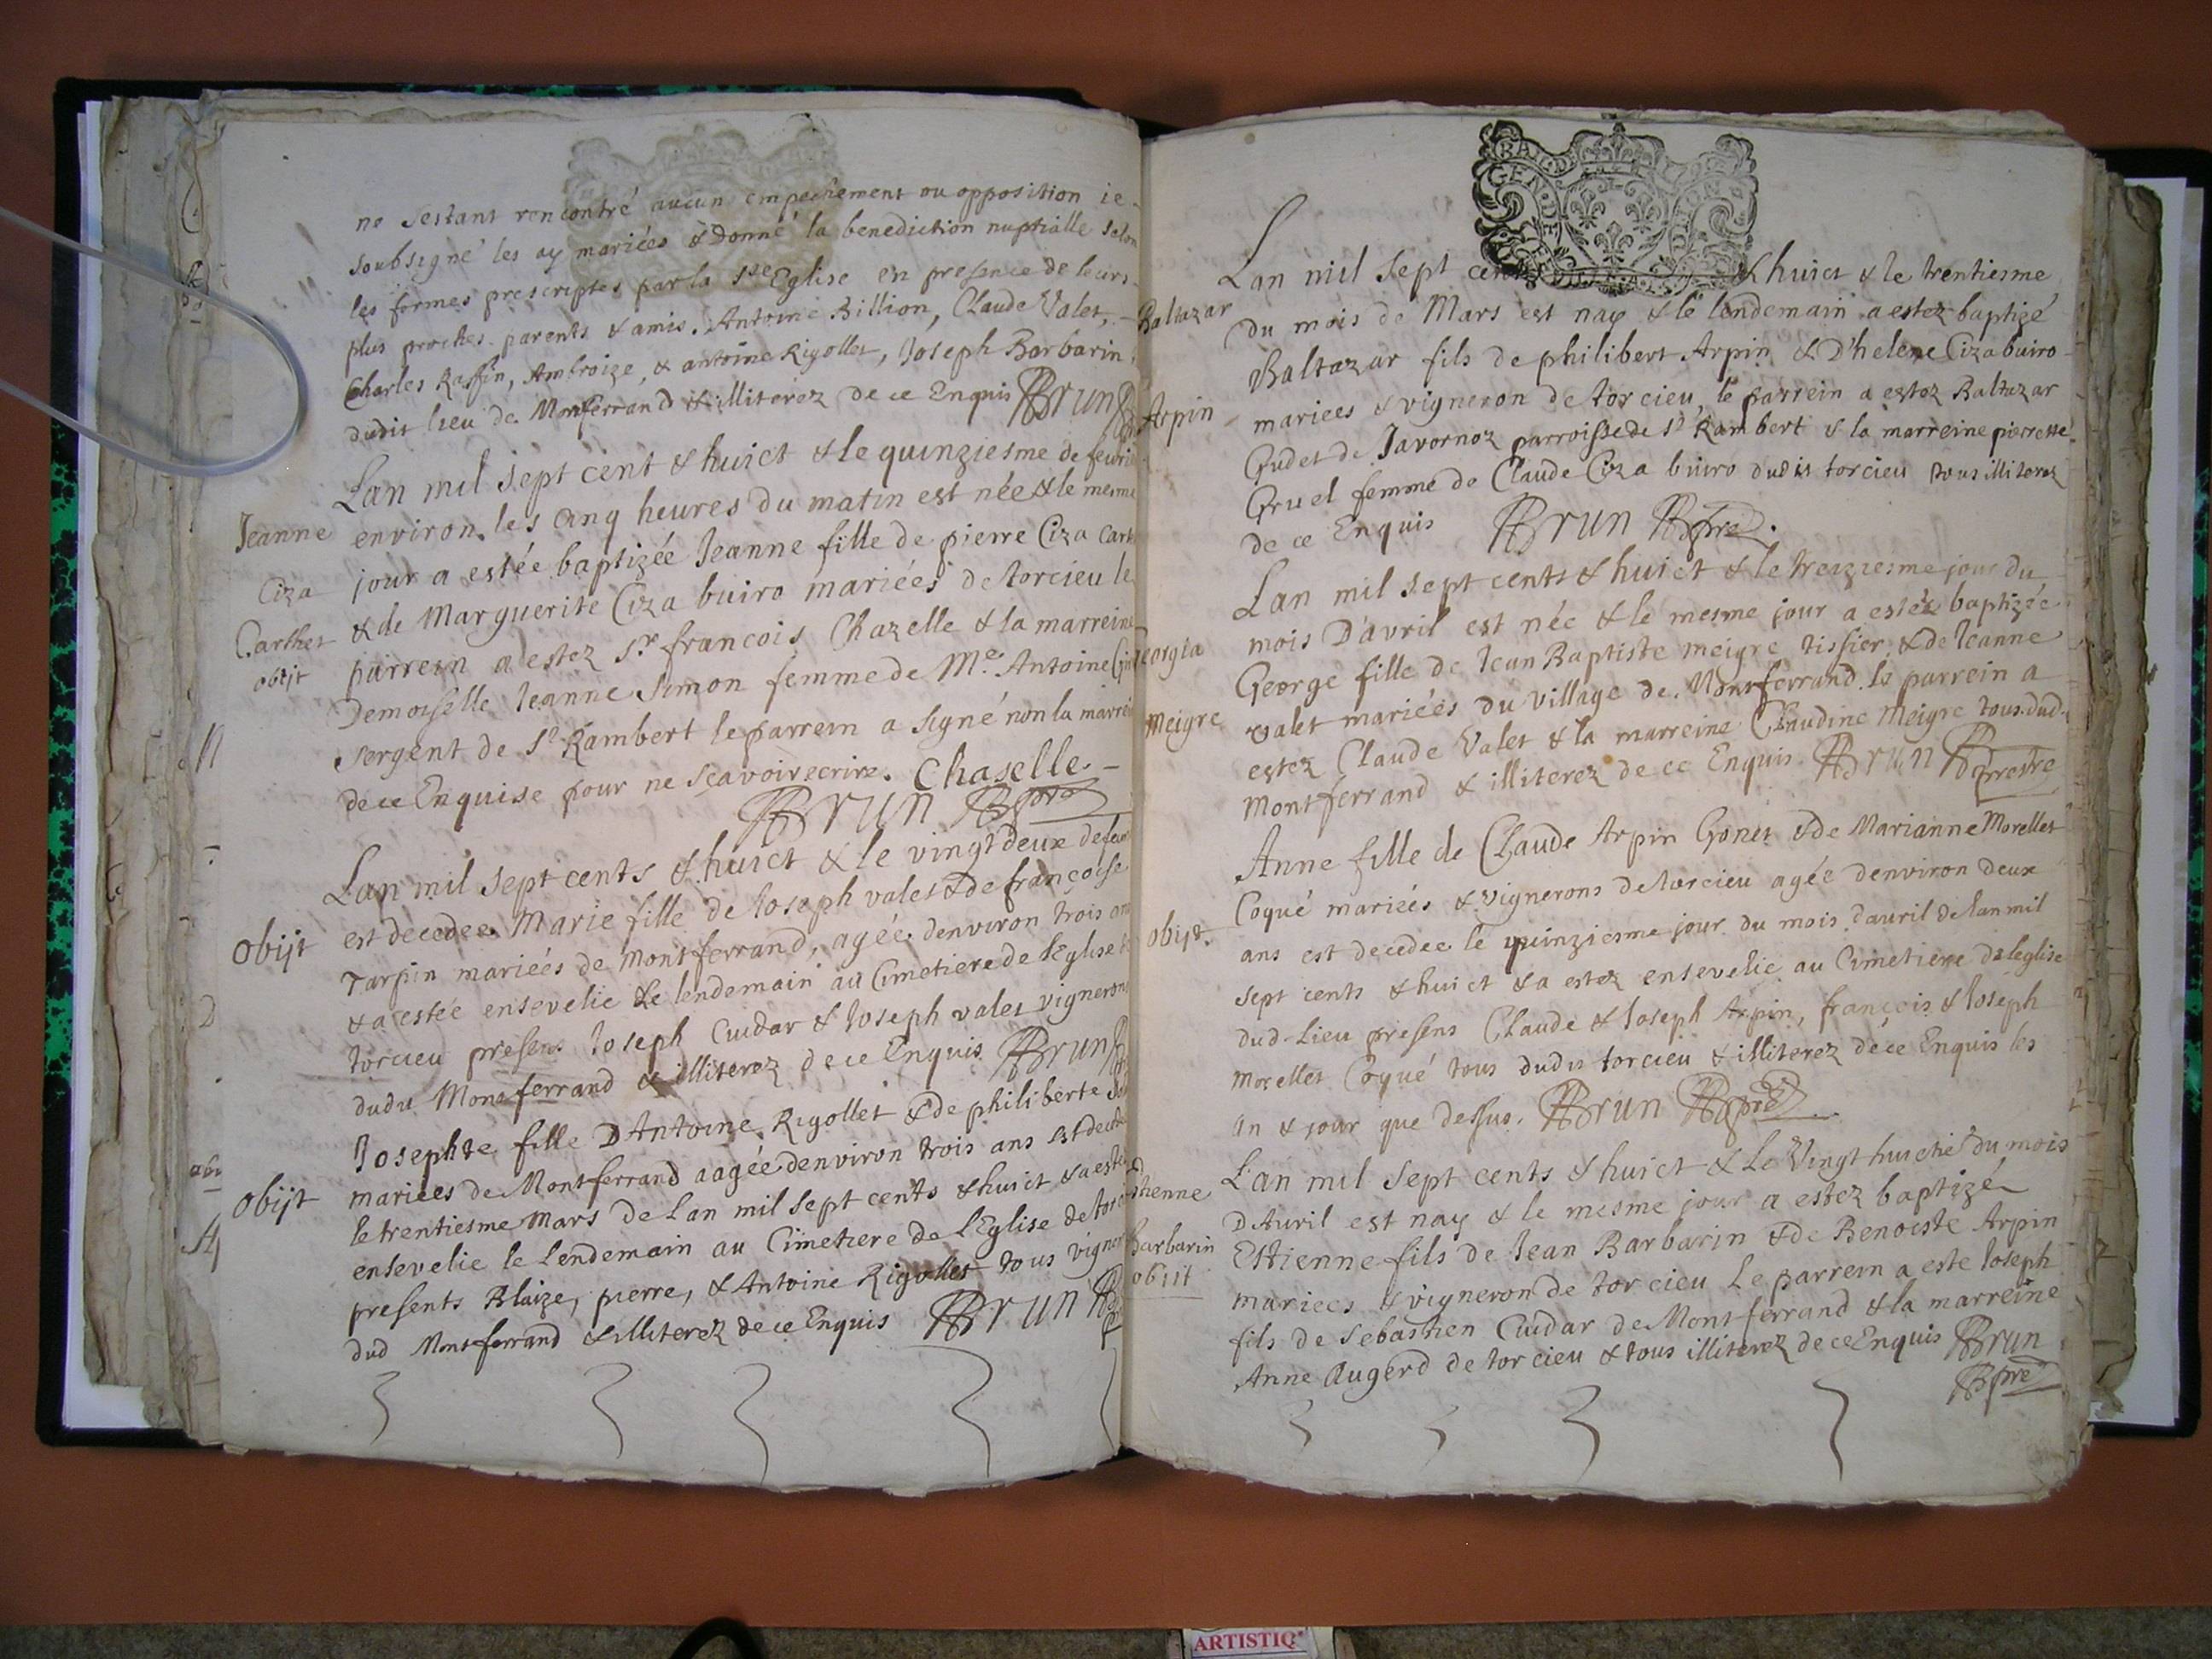 ne sestant rencontré aucun empechement ou opposition ie
soubsigné les ay mariées & Donné la benediction nuptialle selon
les formes prescriptes par la Ste Eglise en presence de leurs
plus proches parents & amis. Antoine Billion, Claude Valet,
Charles Raffin, Ambroize, & antoine Rigollet, Joseph Barbarin
dudit lieu de Monferrand & illiterez de ce Enquis Brun
Lan mil sept cent & huict & le quinziesme de feurie
Jeanne environ les cinq heures du matin est née & le mesme
jour a estée baptizée Jeanne fille de pierre Ciza Cart
Ciza & de Marguerite Ciza buiro mariées de torcieu le
Carthet parrein a estez Sr francois Chazelle & la marreine
obijt Demoiselle Jeanne Simon femme de Me Antoine
sergent de St Rambert le parrein a signé non la marrei
de ce Enquise pour ne scavoir ecrire. Chaselle
Brun pre
Lan mil sept cents & huict & le vingt deux de feu
est decedee Marie fille de Joseph valet & de francoise
obijt Tarpin mariées de Montferrand, agée denviron trois an
& a estée ensevelie Le lendemain au Cimetiere de l'Eglise
torcieu presens Joseph Cuidar & Joseph valet vignerons
dudit Monsferrand & illiterez de ce Enquis Brun
Josephte fille D'Antoine Rigollet & de philiberte
mariees de Montferrand aagée denviron trois ans est decede
obijt le trentiesme Mars de Lan mil sept cents & huict & a esté
ensevelie le Lendemain au Cimetiere de L'Eglise de torc
presents Blaize, pierre, & Antoine Rigollet tous vigner
dud Montferrand & illiterez de ce Enquis Brun
Lan mil sept cents & huict & le trentiesme
Baltazar du mois de Mars est nay & le lendemain a estez baptizé
Baltazar fils de philibert Arpin & D'helene Ciza buiro
Arpin mariees & vigneron de torcieu, le parrein a estez Baltazar
Gudet de Javornoz parroisse de St Rambert & la marreine pierrette
Gruel femme de Claude Ciza buiro dudit torcieu tous illiterez
de ce Enquis Brun pre
Lan mil sept cents & huict & le treiziesme jour du
mois D'avril est née & le mesme jour a estée baptizée
eorgia George fille de Jean Baptiste meigre tissier & de Jeanne
Meigre valet mariées du village de Montferrand le parrein a
estez Claude Valet & la marreine Claudine Meigre tous dud
Montferrand & illiterez de ce Enquis Brun prestre
Anne fille de Claude Arpin Gonet & de Marianne Morellet
Coqué mariées & vignerons de torcieu agée denviron deux
obijt ans est decedee le quinziesme jour du mois dauril de lan mil
sept cents & huict & a estez ensevelie au Cimetiere de leglise
dud Lieu presens Claude & Joseph Arpin, françois & Joseph
Morellet Coqué tous dudit torcieu & illiterez de ce Enquis les
an & jour que dessus. Brun pre
L'an mil sept cents & huict & Le Vingt huictie du mois
tienne D'Auril est nay & le mesme jour a estez baptizé
Barbarin Estienne fils de Jean Barbarin & de Benoiste Arpin
obiit mariees & vigneron de torcieu Le parrein a este Joseph
fils de Sebastien Cuidar de Montferrand & la marreine
Anne Augerd de torcieu & tous illiterez de ce Enquis Brun
pre
ARTISTIQ